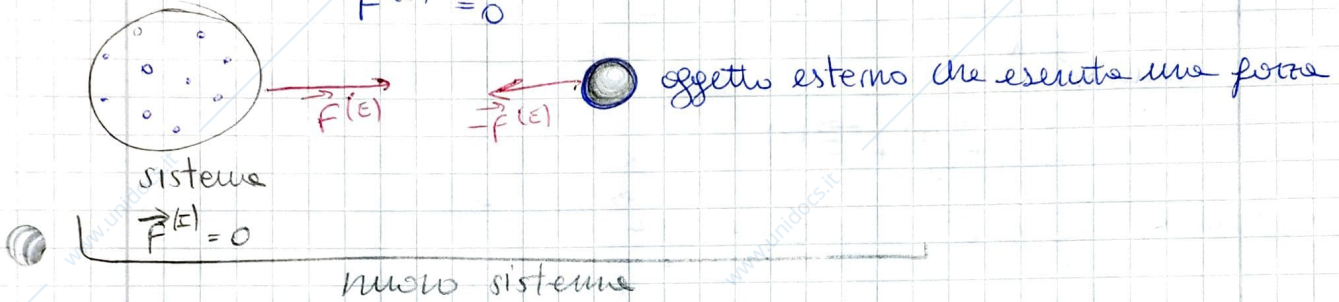 = 0
oggetto esterno che esercita una forza
F⃗(E)
-F⃗(E)
sistema
F⃗(I) = 0
nuovo sistema
www.unidocs.it
www.unidocs.it